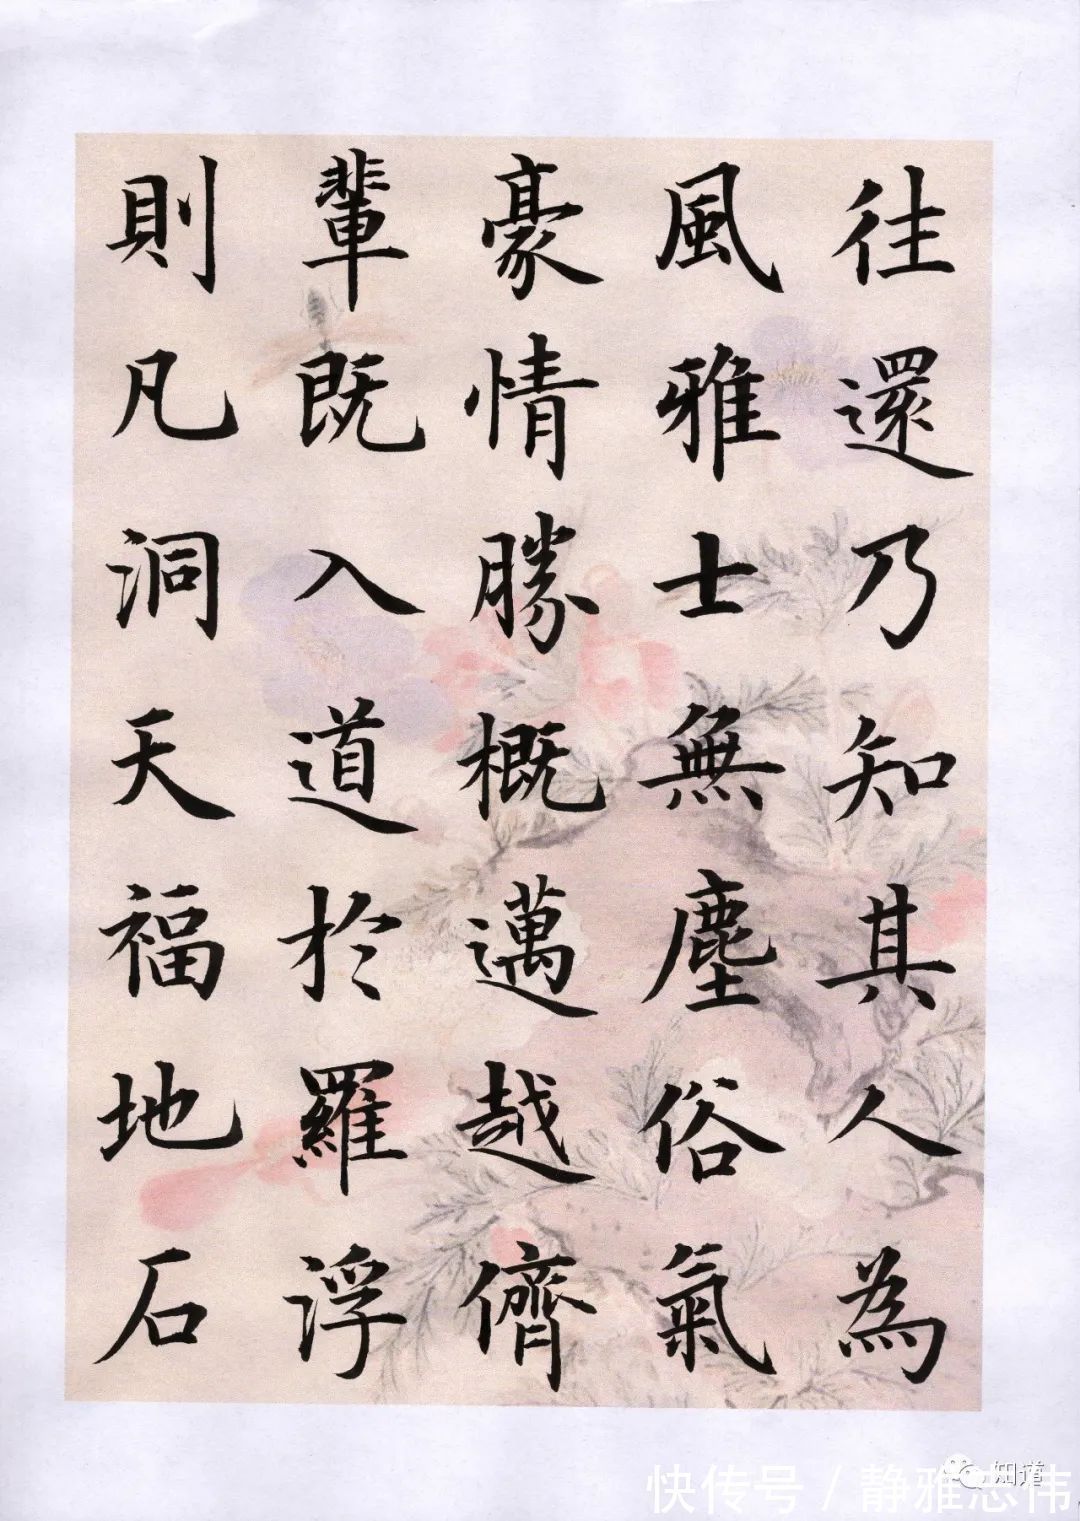 往還乃知其人為
風雅士無塵俗氣
豪情勝概邁越儕
輩既入道於羅浮
則凡洞天福地石
知道
快传号/静雅志伟